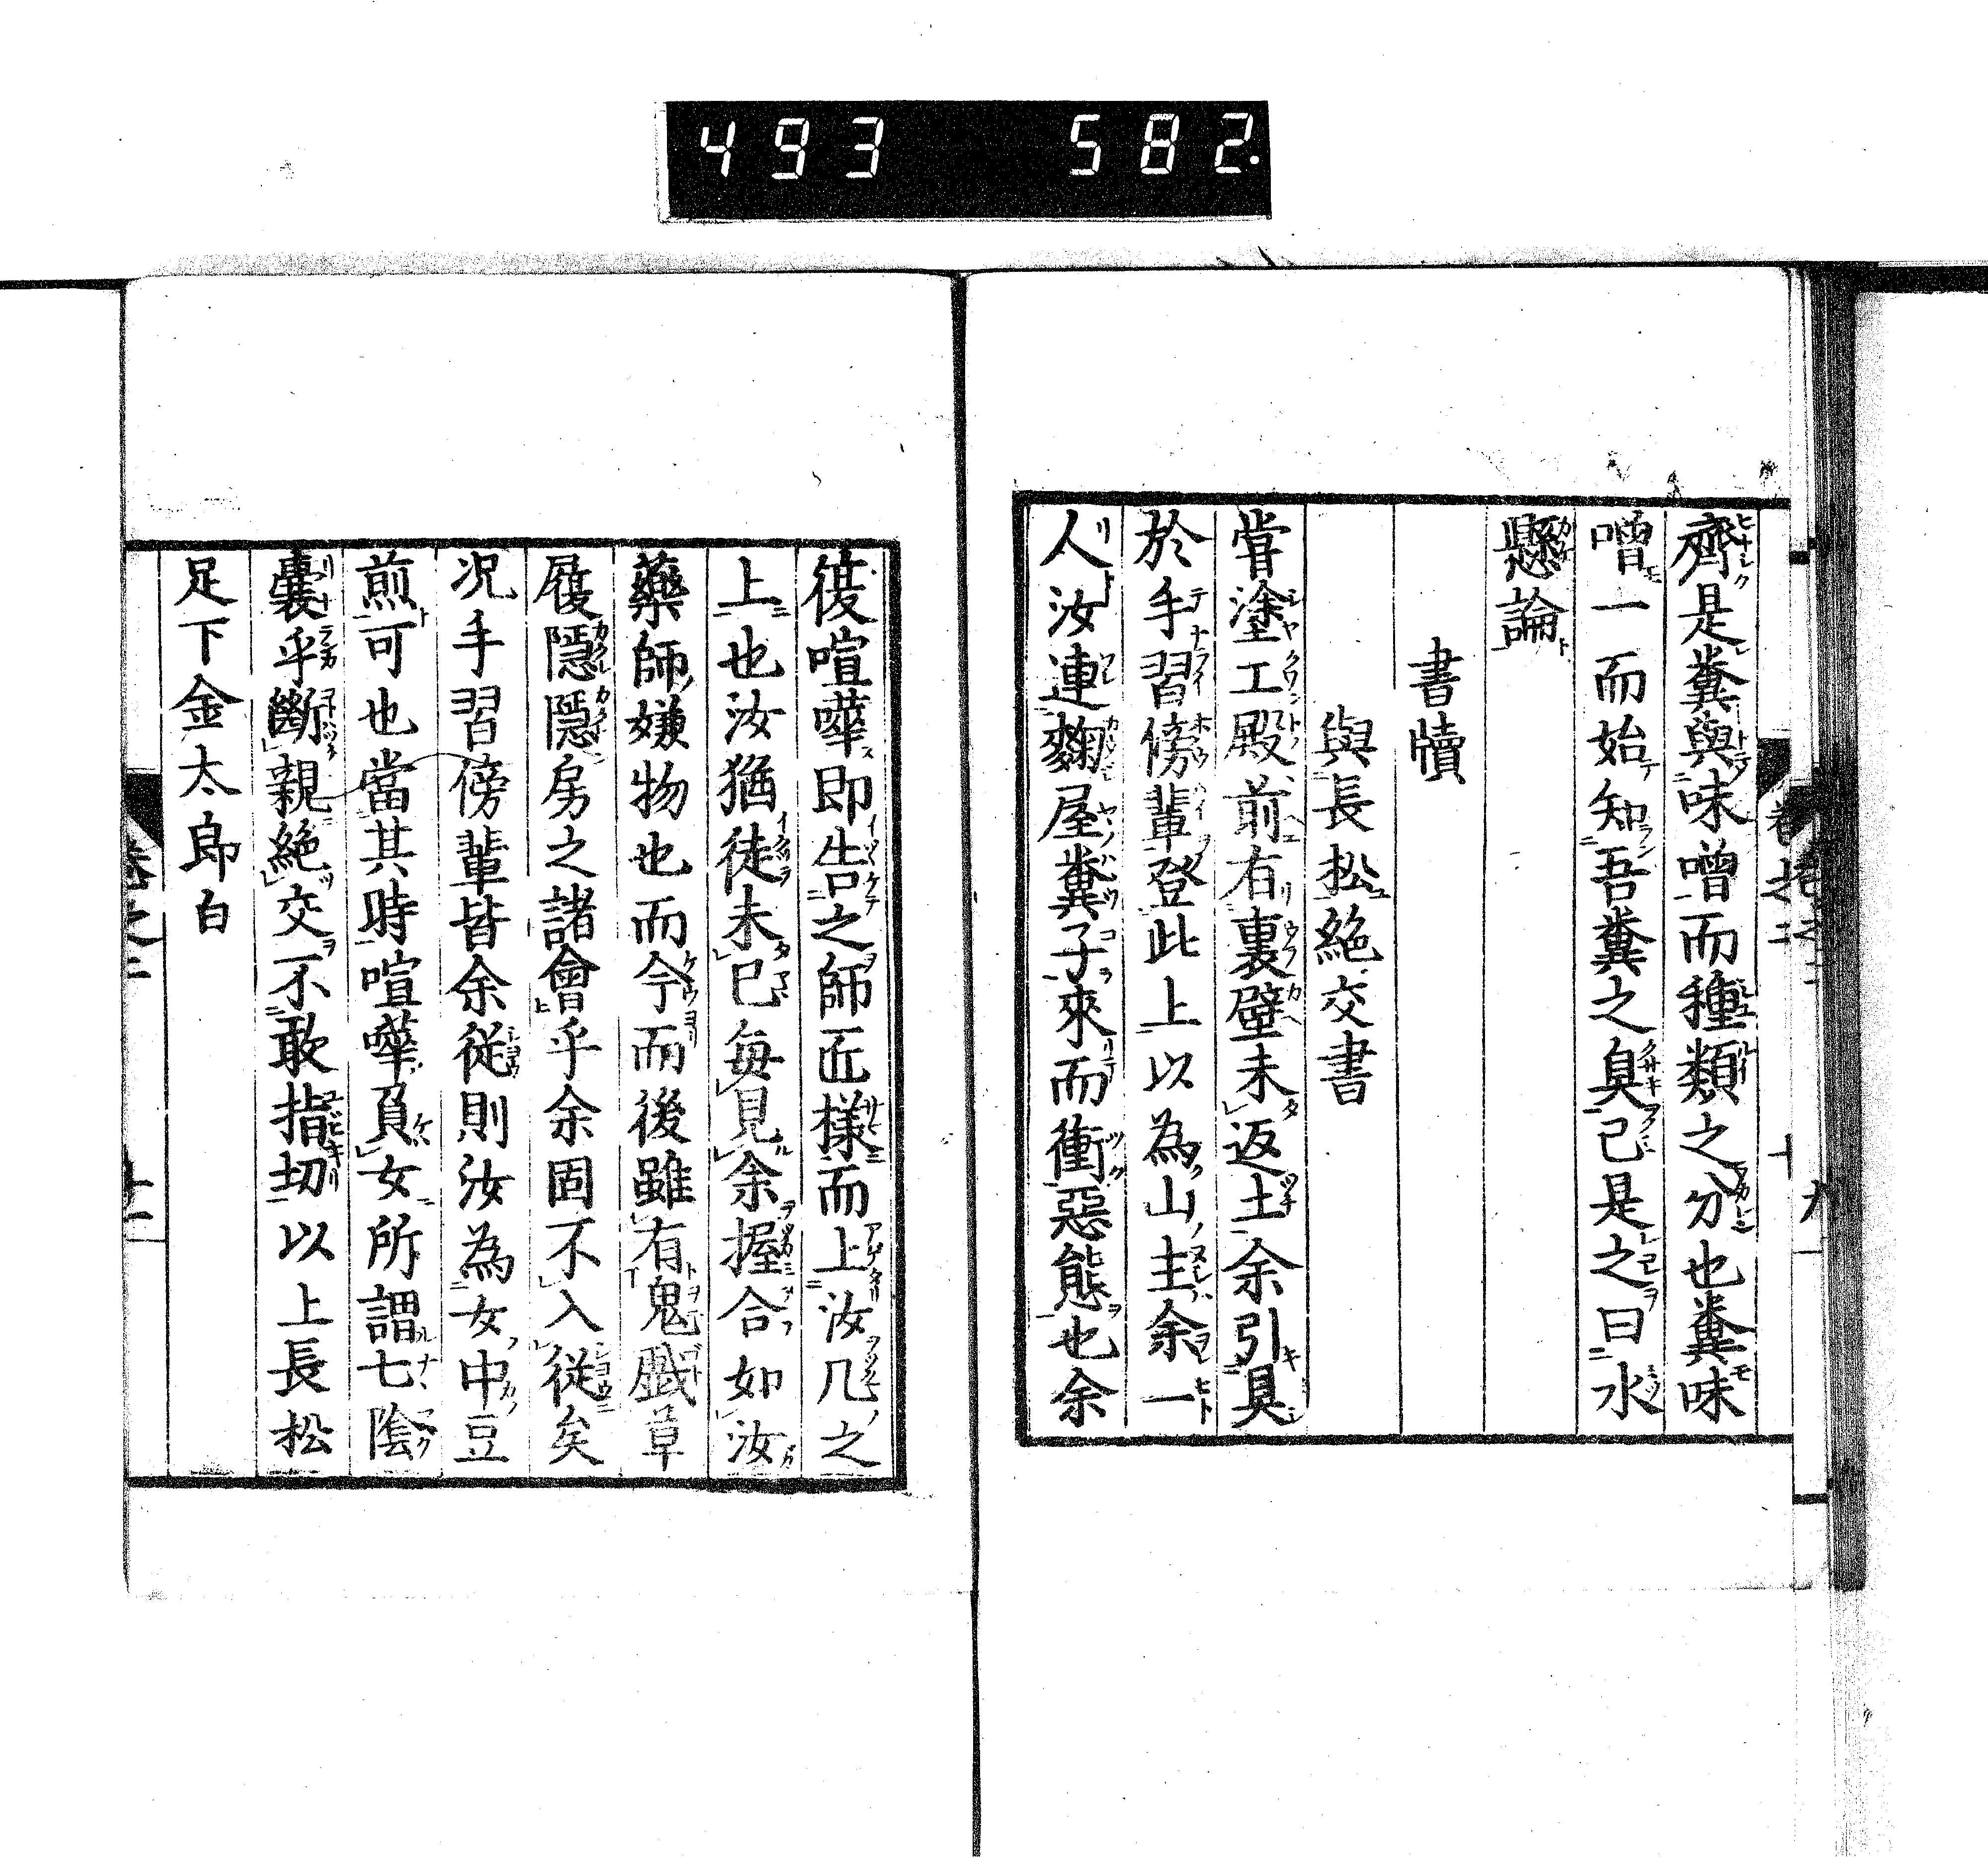 493 582.
齊是糞與味噌而種類之分也糞味
噌一而始知吾糞之臭己是之曰水
懸論
書牘
與長松絕交書
嘗塗工殿前有裏壁未返土余引臭
於手習傍輩登此上以為山主余一
人汝連麴屋糞子來而衝惡態也余
後喧嘩即告之師匠樣而上汝几之
上也汝猶徒未已每見余握合如汝
藥師嫌物也而今而後雖有鬼戲草
履隱隱房之諸會乎余固不入從矣
况手習傍輩皆余從則汝為女中豆
煎可也當其時喧嘩負女所謂七陰
囊乎斷親絕交不敢指切以上長松
足下金太郎白